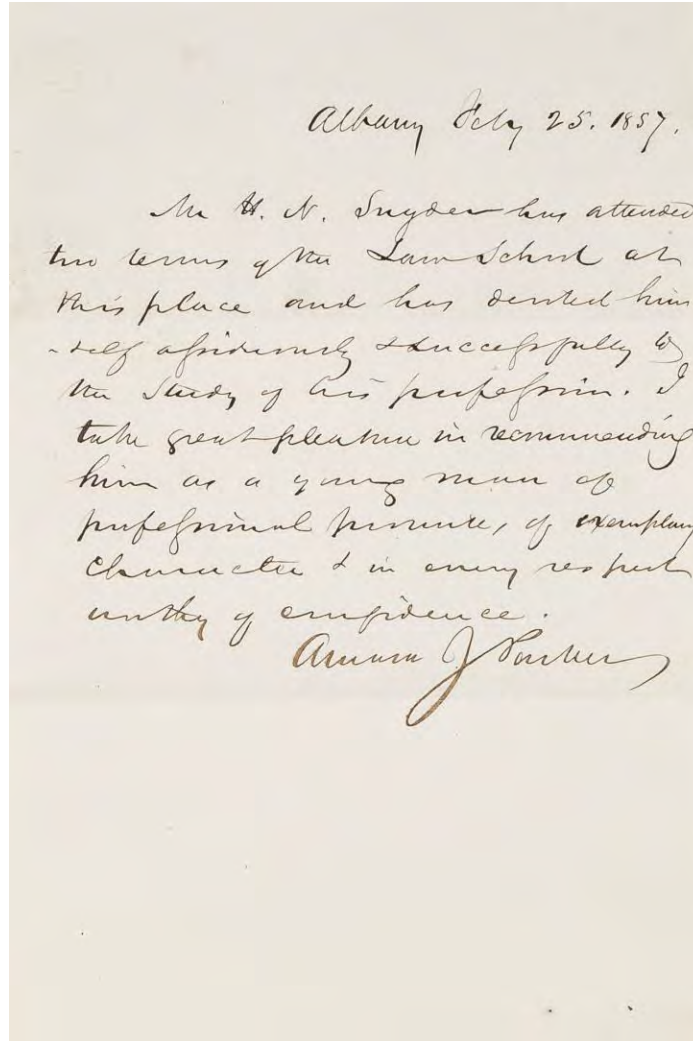 Albany Feby 25. 1857.
Mr H. N. Snyder has attended
two terms of the Law School at
this place and has devoted him
-self assiduously & successfully to
the study of his profession. I
take great pleasure in recommending
him as a young man of
professional promise, of exemplary
character & in every respect
worthy of confidence.
Amasa J Parker